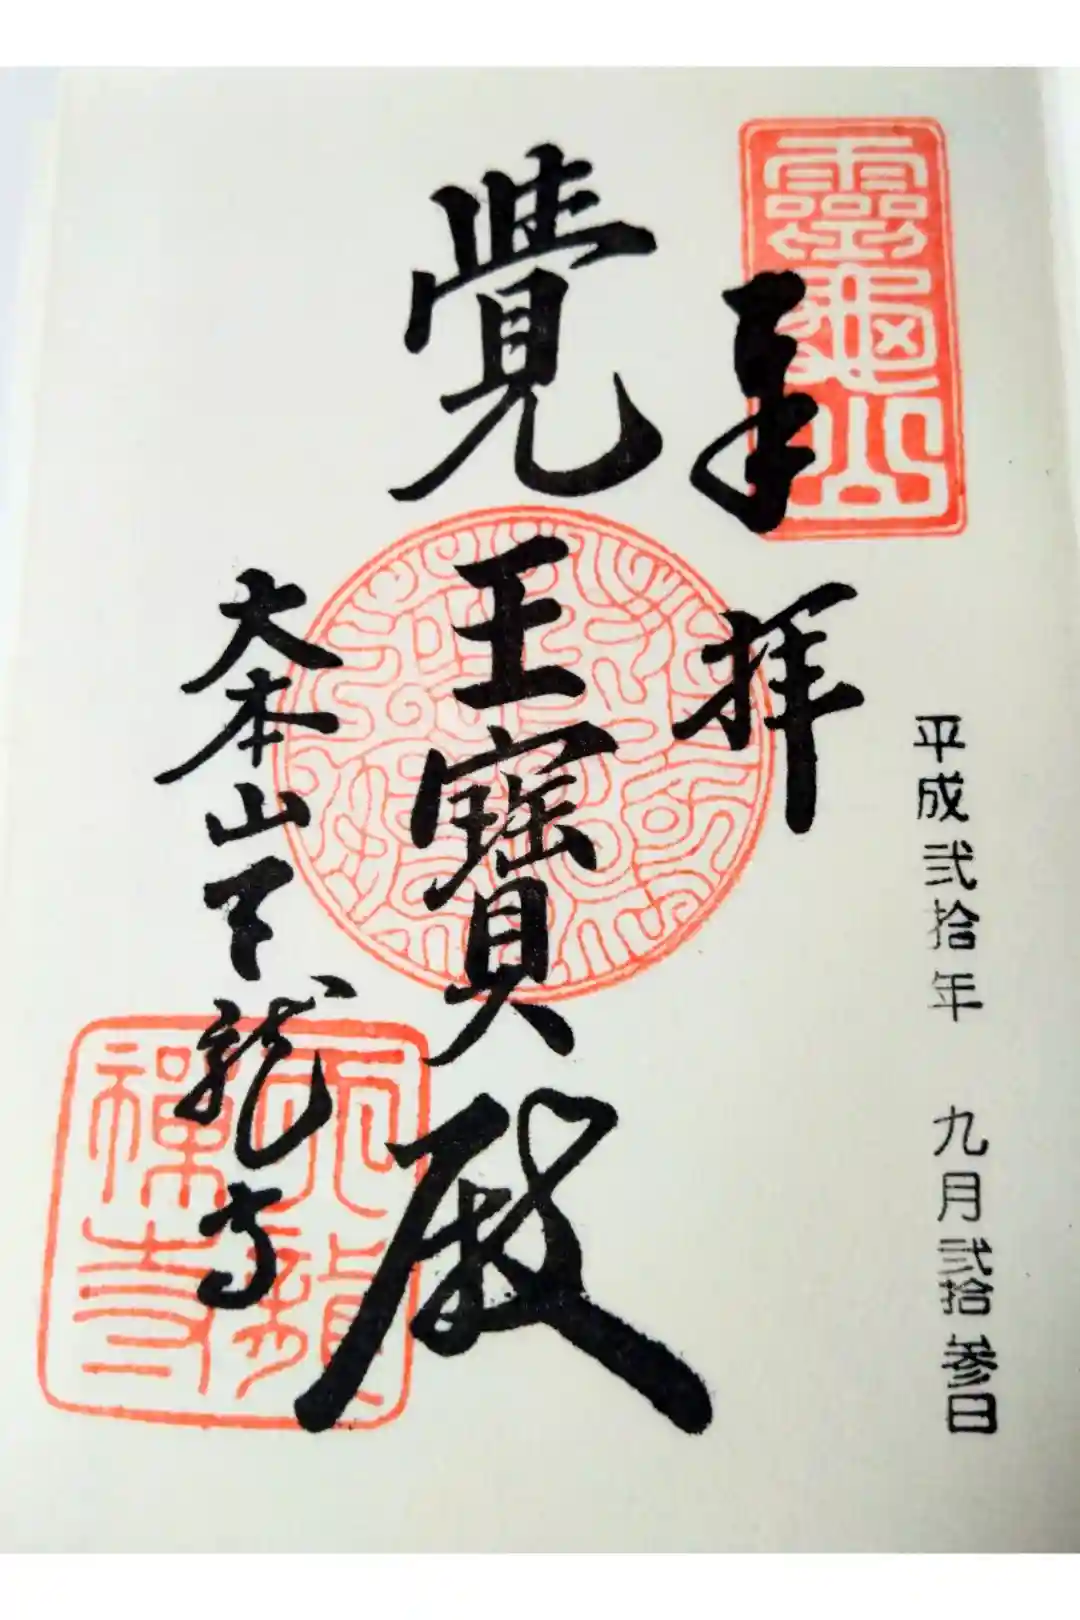 平成弐拾年 九月弐拾参日
奉拝
靈龜山
覺王寶殿
大本山天龍寺
天龍禪寺